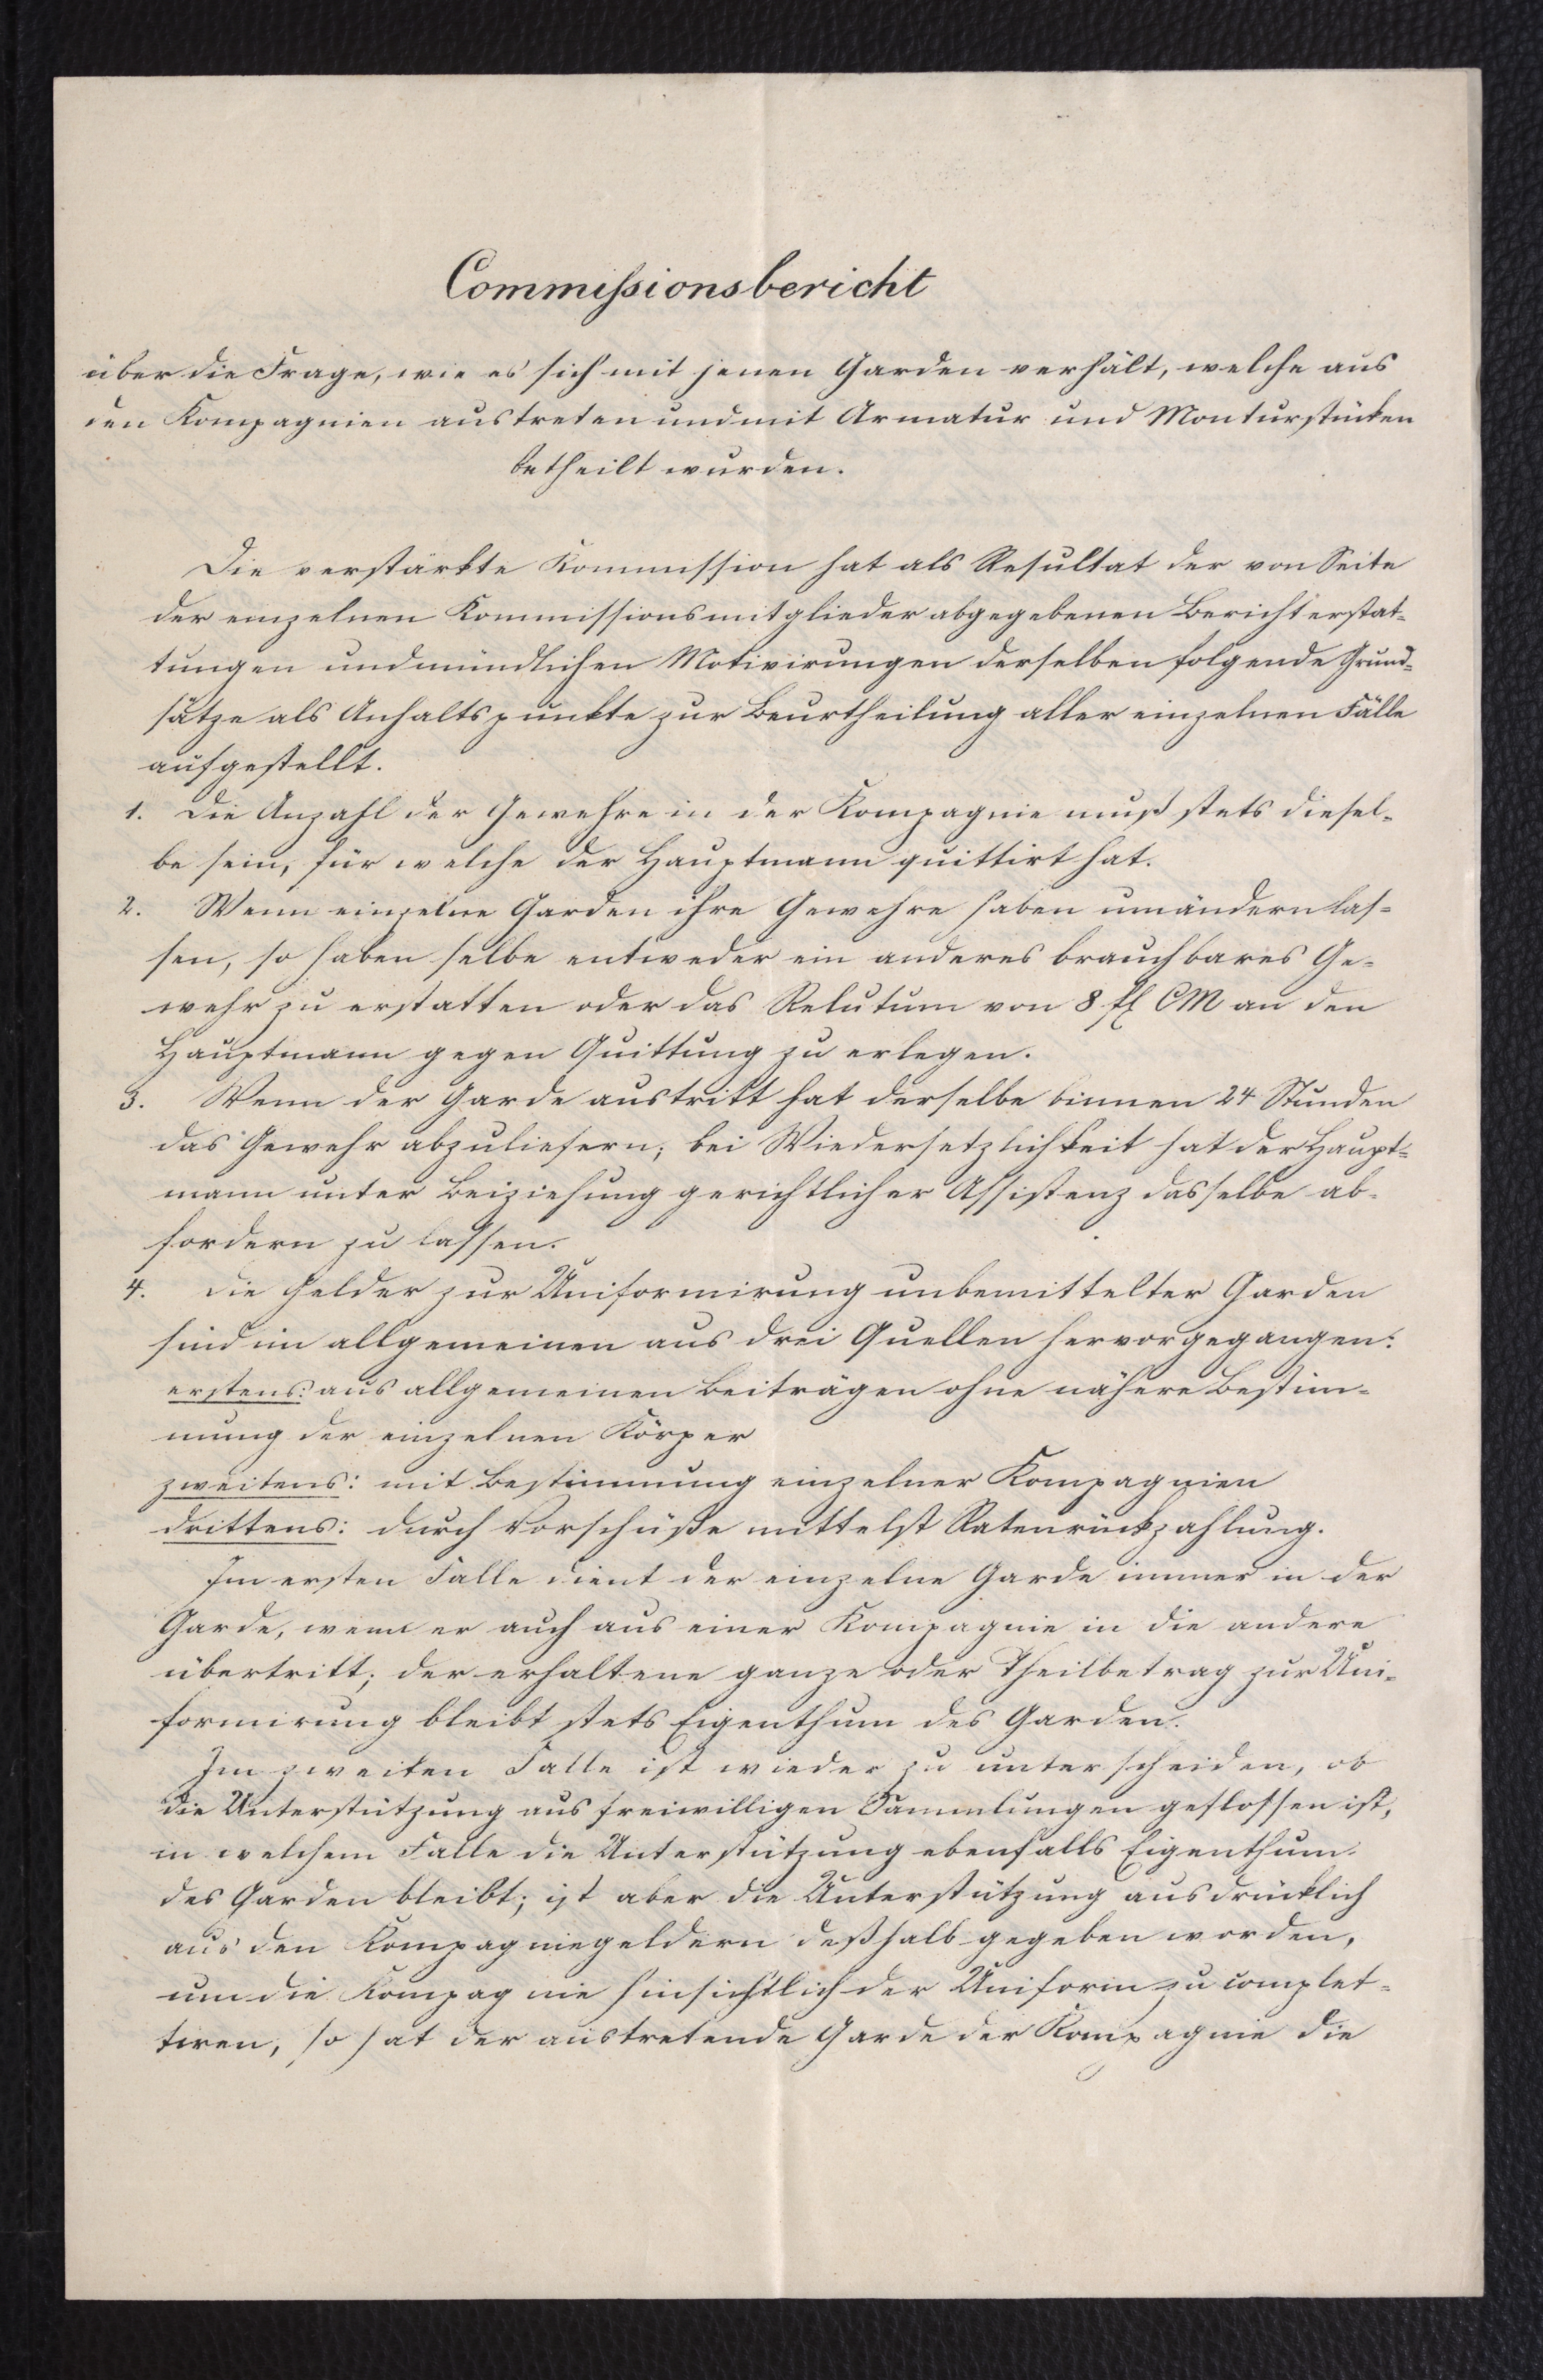 Commissionsbericht
über die Frage, wie es sich mit jenen Garden verhält, welche aus
den Kompagnien austreten und mit Armatur und Monturstücken
betheilt wurden.
Die verstärkte Kommission hat als Resultat der von Seite
der einzelnen Kommissionsmitglieder abgegebenen Berichterstat-
tungen und mündlichen Motivirungen derselben folgende Grund-
sätze als Anhaltspunkte zur Beurtheilung aller einzelnen Fälle
aufgestellt.
1. Die Anzahl der Gewehre in der Kompagnie muß stets diesel-
be sein, für welche der Hauptmann quittirt hat.
2. Wenn einzelne Garden ihre Gewehre haben umändern las-
sen, so haben selbe entweder ein anderes brauchbares Ge-
wehr zu erstatten oder das Relutum von 8 fl CM an den
Hauptmann gegen Quittung zu erlegen.
3. Wenn der Garde austritt hat derselbe binnen 24 Stunden
das Gewehr abzuliefern; bei Wiedersetzlichkeit hat der Haupt-
mann unter Beiziehung gerichtlicher Assistenz dasselbe ab-
fordern zu lassen.
4. Die Gelder zur Uniformirung unbemittelter Garden
sind im allgemeinen aus drei Quellen hervorgegangen:
erstens: aus allgemeinen Beiträgen ohne nähere Bestim-
mung der einzelnen Körper
zweitens: mit Bestimmung einzelner Kompagnien
drittens: durch Vorschüße mittelst Ratenrückzahlung.
Im ersten Falle dient der einzelne Garde immer in der
Garde, wenn er auch aus einer Kompagnie in die andere
übertritt; der erhaltene ganze oder Theilbetrag zur Uni-
formirung bleibt stets Eigenthum des Garden.
Im zweiten Falle ist wieder zu unterscheiden, ob
die Unterstützung aus freiwilligen Sammlungen geflossen ist,
in welchem Falle die Unterstützung ebenfalls Eigenthum
des Garden bleibt; ist aber die Unterstützung ausdrücklich
aus den Kompagniegeldern deßhalb gegeben worden,
um die Kompagnie hinsichtlich der Uniform zu complet-
tiren, so hat der austretende Garde der Kompagnie die